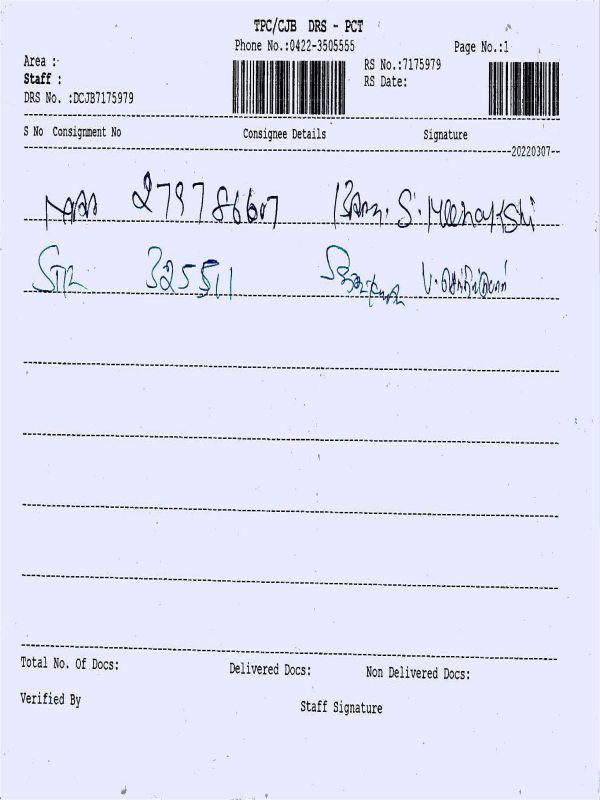 TPC/CJB DRS - PCT
Phone No.:0422-3505555 Page No.:1
Area :
Staff :
DRS No. :DCJB7175979
RS No.:7175979
RS Date:
S No Consignment No Consignee Details Signature
20220307
279786607 S. Meenakshi
STR 325511
Total No. Of Docs: Delivered Docs: Non Delivered Docs:
Verified By Staff Signature